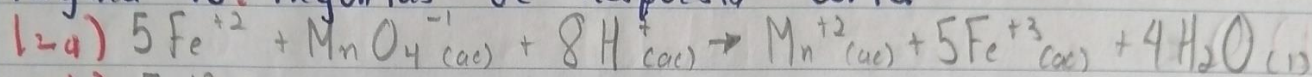 12-a) 5Fe⁺² + MnO₄⁻¹(ac) + 8H⁺(ac) → Mn⁺²(ac) + 5Fe⁺³(ac) + 4H₂O(l)